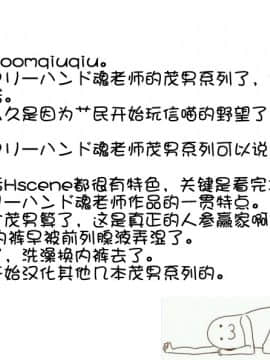 oomqiuqiu。
フリーハンド魂老师的茂男系列了，
久是因为艹民开始玩信喵的野望了
フリーハンド魂老师茂男系列可以说
Hscene都很有特色，关键是看完
リーハンド魂老师作品的一贯特点。
茂男算了，这是真正的人参赢家啊
内裤早被前列腺液弄湿了。
了，洗澡换内裤去了。
开始汉化其他几本茂男系列的。